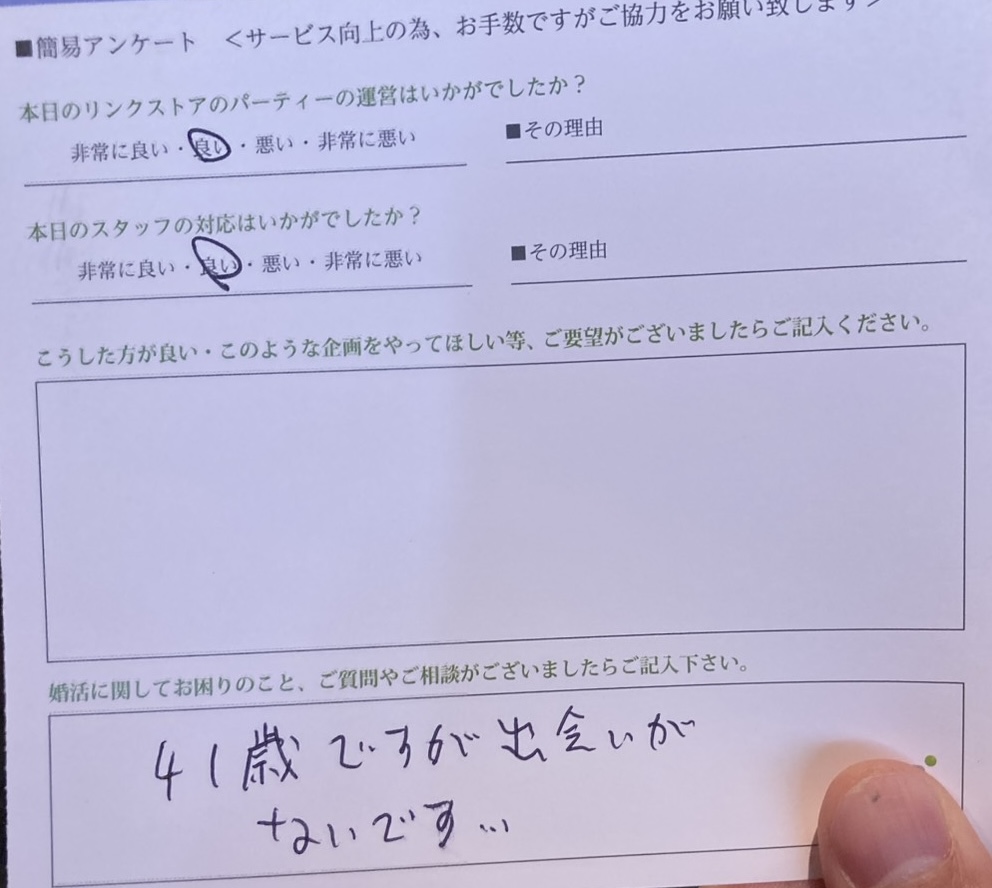 ■簡易アンケート ＜サービス向上の為、お手数ですがご協力をお願い致します＞
本日のリンクストアのパーティーの運営はいかがでしたか？
非常に良い・良い・悪い・非常に悪い
■その理由
本日のスタッフの対応はいかがでしたか？
非常に良い・良い・悪い・非常に悪い
■その理由
こうした方が良い・このような企画をやってほしい等、ご要望がございましたらご記入ください。
婚活に関してお困りのこと、ご質問やご相談がございましたらご記入下さい。
41歳ですが出会いが
ないです…